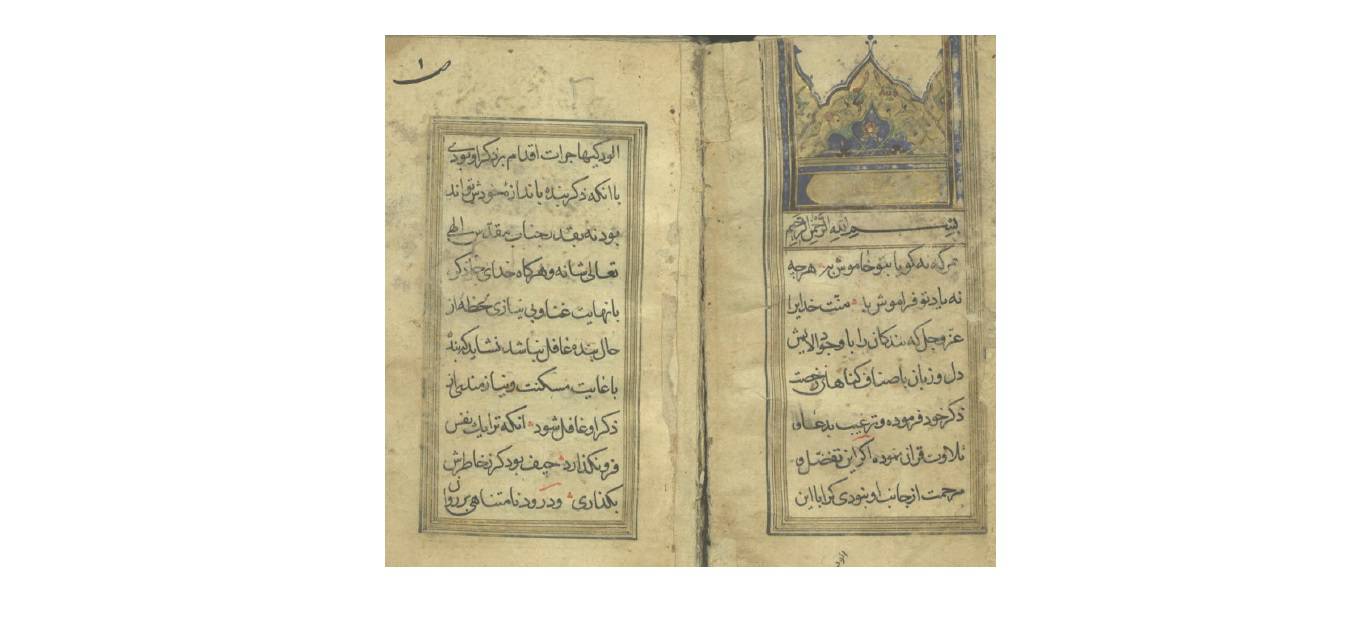 بسم الله الرحمن الرحیم
هر که نه کویا بتو خاموش به هرچه
نه یاد تو فراموش به منت خدایرا
عز وجل که بندکان را با وجود الایش
دل و زبان باصناف کناهان رخصت
ذکر خود فرموده و ترغیب بدعا و
تلاوت قران نموده اکر این تفضل و
مرحمت از جانب او نبودی کرا با این
الود
ص ۱
الودکیها جرات اقدام بر ذکر او بودی
با انکه ذکر بنده باندازه خودش تواند
بود نه بقدر جناب مقدس الهی
تعالی شانه و هرکاه خدای
با نهایت غنا و بی نیازی لحظه از
حال بنده غافل نباشد نشاید که بنده
با غایت مسکنت و نیازمندی از
ذکر او غافل شود انکه ترا یک نفس
فرو نکذارد حیف بود کر نه خاطرش
بکذاری و درود نامتناهی بر روان